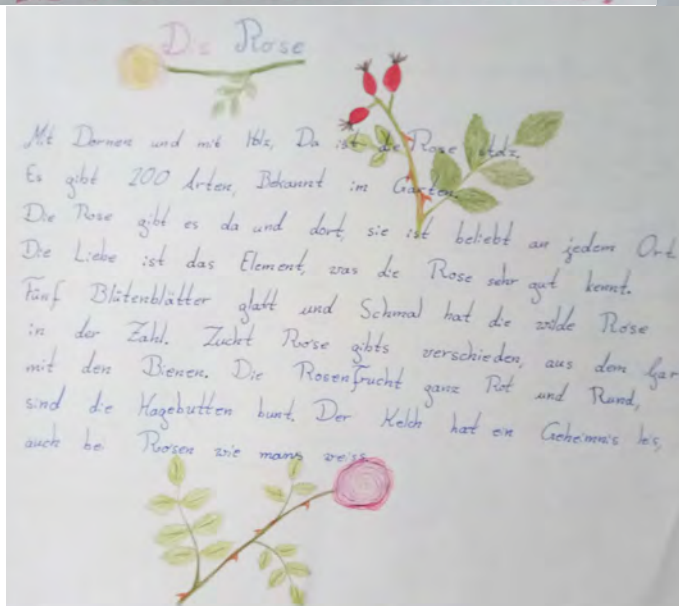 Die Rose
Mit Dornen und mit Holz, Da ist die Rose stolz.
Es gibt 200 Arten, Bekannt im Garten.
Die Rose gibt es da und dort, sie ist beliebt an jedem Ort
Die Liebe ist das Element, was die Rose sehr gut kennt.
Fünf Blütenblätter glatt und Schmal hat die wilde Rose
in der Zahl. Zucht Rose gibts verschieden, aus dem Gar
mit den Bienen. Die Rosenfrucht ganz Rot und Rund,
sind die Hagebutten bunt. Der Kelch hat ein Geheimnis leis,
auch bei Rosen wie mans weiss.